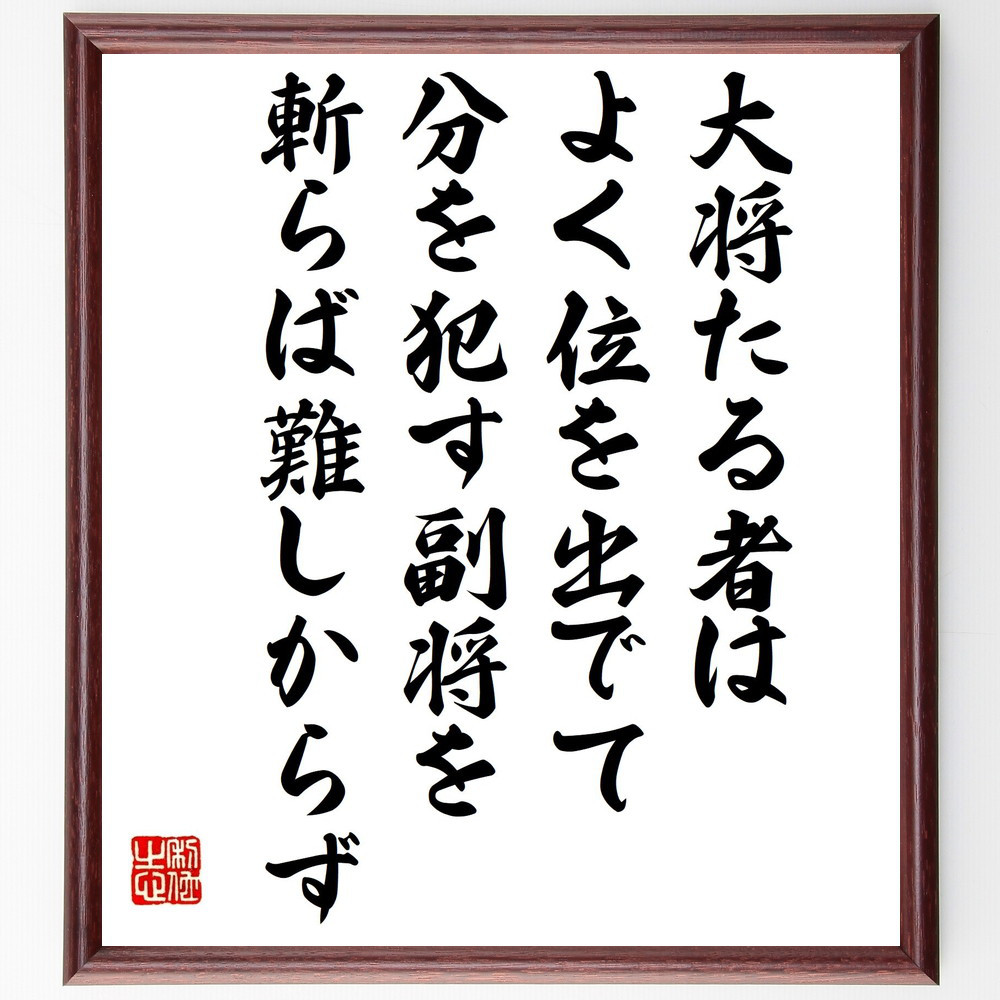 大将たる者は
よく位を出でて
分を犯す副将を
斬らば難しからず